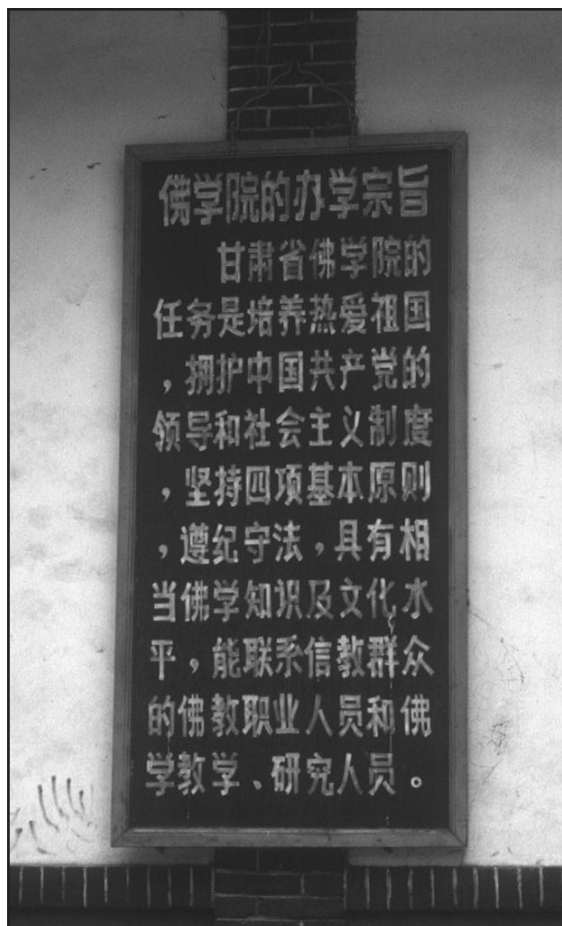 佛学院的办学宗旨
甘肃省佛学院的
任务是培养热爱祖国
，拥护中国共产党的
领导和社会主义制度
，坚持四项基本原则
，遵纪守法，具有相
当佛学知识及文化水
平，能联系信教群众
的佛教职业人员和佛
学教学、研究人员。